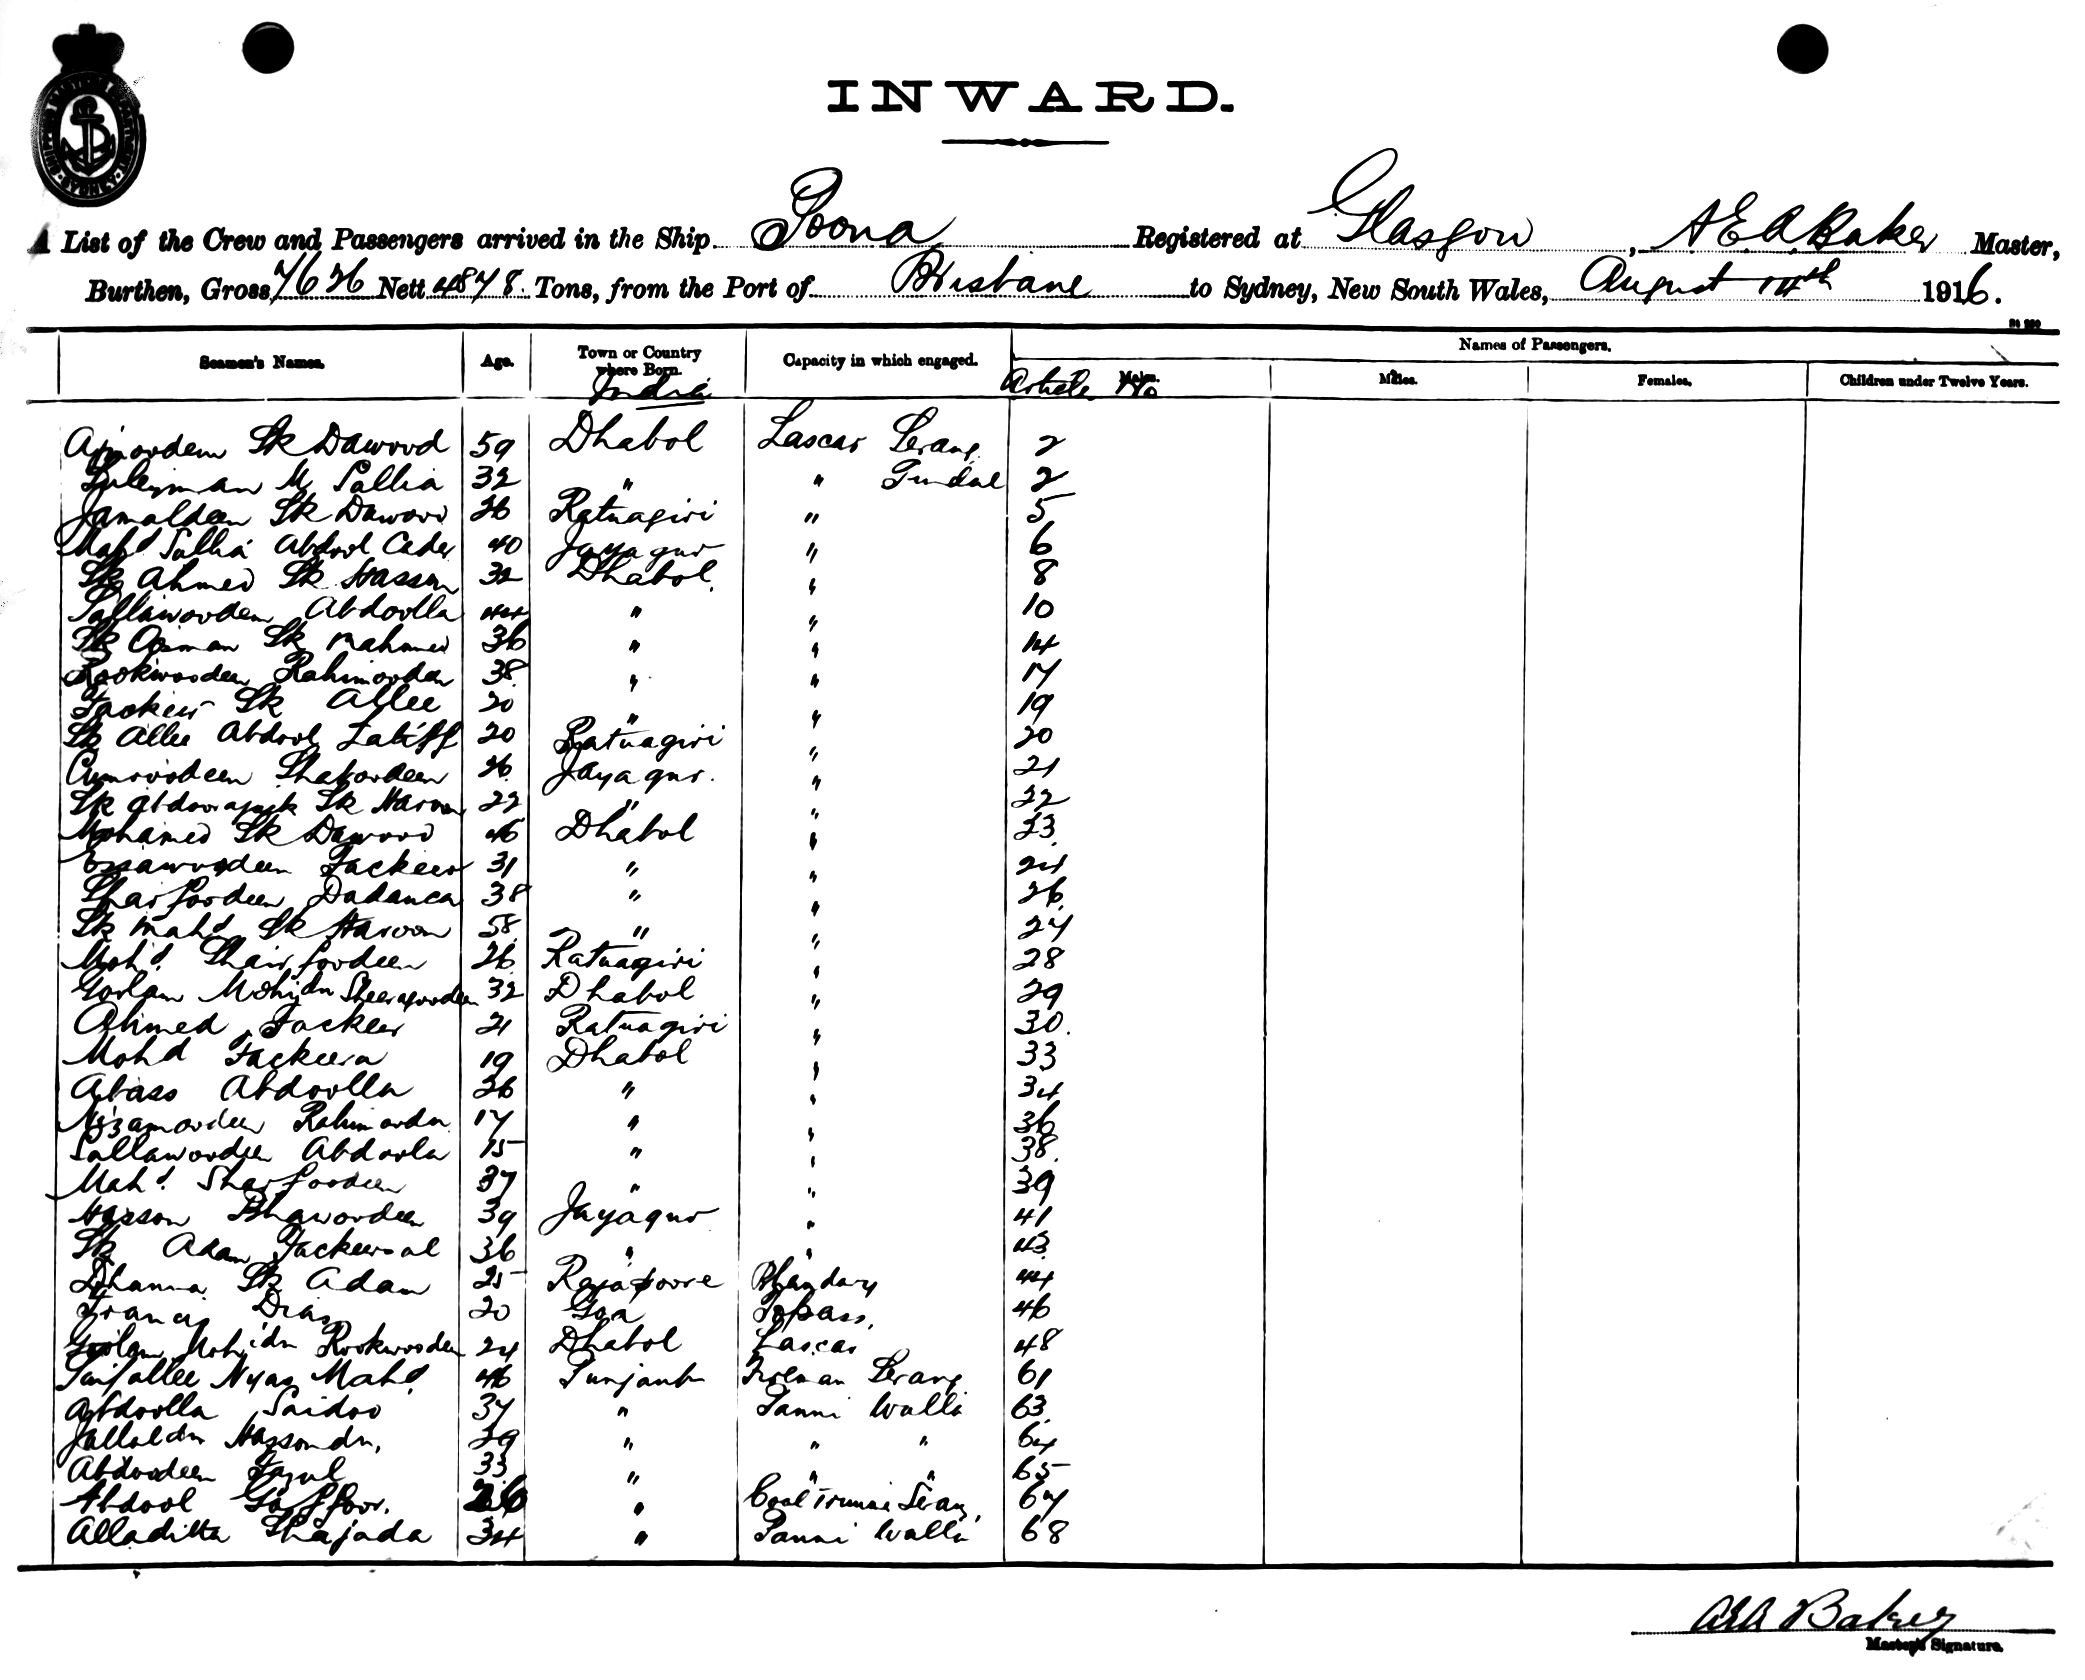 INWARD.
A List of the Crew and Passengers arrived in the Ship Poona Registered at Glasgow, A E A Baker Master,
Burthen, Gross 7626 Nett 4878. Tons, from the Port of Brisbane to Sydney, New South Wales, August 14th 1916.
Seamen's Names. Age. Town or Country where Born. Capacity in which engaged. Names of Passengers.
India Article No Males. Males. Females. Children under Twelve Years.
Ajmoordeen Sk Dawood 59 Dhabol Lascar Serang 2
Suleyman M Sallia 32 " " Tindal 2
Jamaldeen Sk Dawood 26 Ratnagiri " 5
Mahd Sallia Abdool Cader 40 Jayagur " 6
Sk Ahmed Sk Hassan 32 Dhabol. " 8
Sallawoordeen Abdoolla 44 " " 10
Sk Osman Sk Mahmed 36 " " 14
Rookwoodeen Rahimoodeen 38 " " 17
Fackeer Sk Allee 20 " " 19
Sk Allee Abdool Latiff 20 Ratnagiri " 20
Cumroodeen Shaboodeen 26 Jayagur. " 21
Sk Sk Haroon 22 " " 22
Mohamed Sk Dawood 46 Dhabol " 23
Essawoodeen Fackeer 31 " " 24
Sharfoodeen Dadanca 38 " " 26
Sk Mahd Sk Haroon 58 " " 27
Mohd. Sharfoodeen 26 Ratnagiri " 28
Goolam Mohidn 32 Dhabol " 29
Ahmed Fackeer 21 Ratnagiri " 30.
Mohd Fackeera 19 Dhabol " 33
Abass Abdoolla 26 " " 34
Nizamoodeen Rahimoodn 17 " " 36
Sallawoodeen Abdoola 15 " " 38
Mahd. Sharfoodeen 37 " " 39
Hasson Bhawoodeen 39 Jayagur " 41
Sk Adam 36 " " 43
Dhanna Sk Adam 25 Rajapoore Bhandary 44
Francis Dias 20 Goa Topass. 46
Goolam Mohidn Rookwoodeen 24 Dhabol Lascar 48
Nyaz Mahd. 46 Punjaub Fireman Serang 61
Abdoolla Saidoo 37 " Panni Walla 63
Jallaldn Hassondn. 29 " " " 64
Abdoodeen Fazul 33 " " " 65
Abdool Gaffoor. 26 " Coal Serang 67
Alladitta Shajada 34 " Panni Walla 68
AEA Baker
Master's Signature.